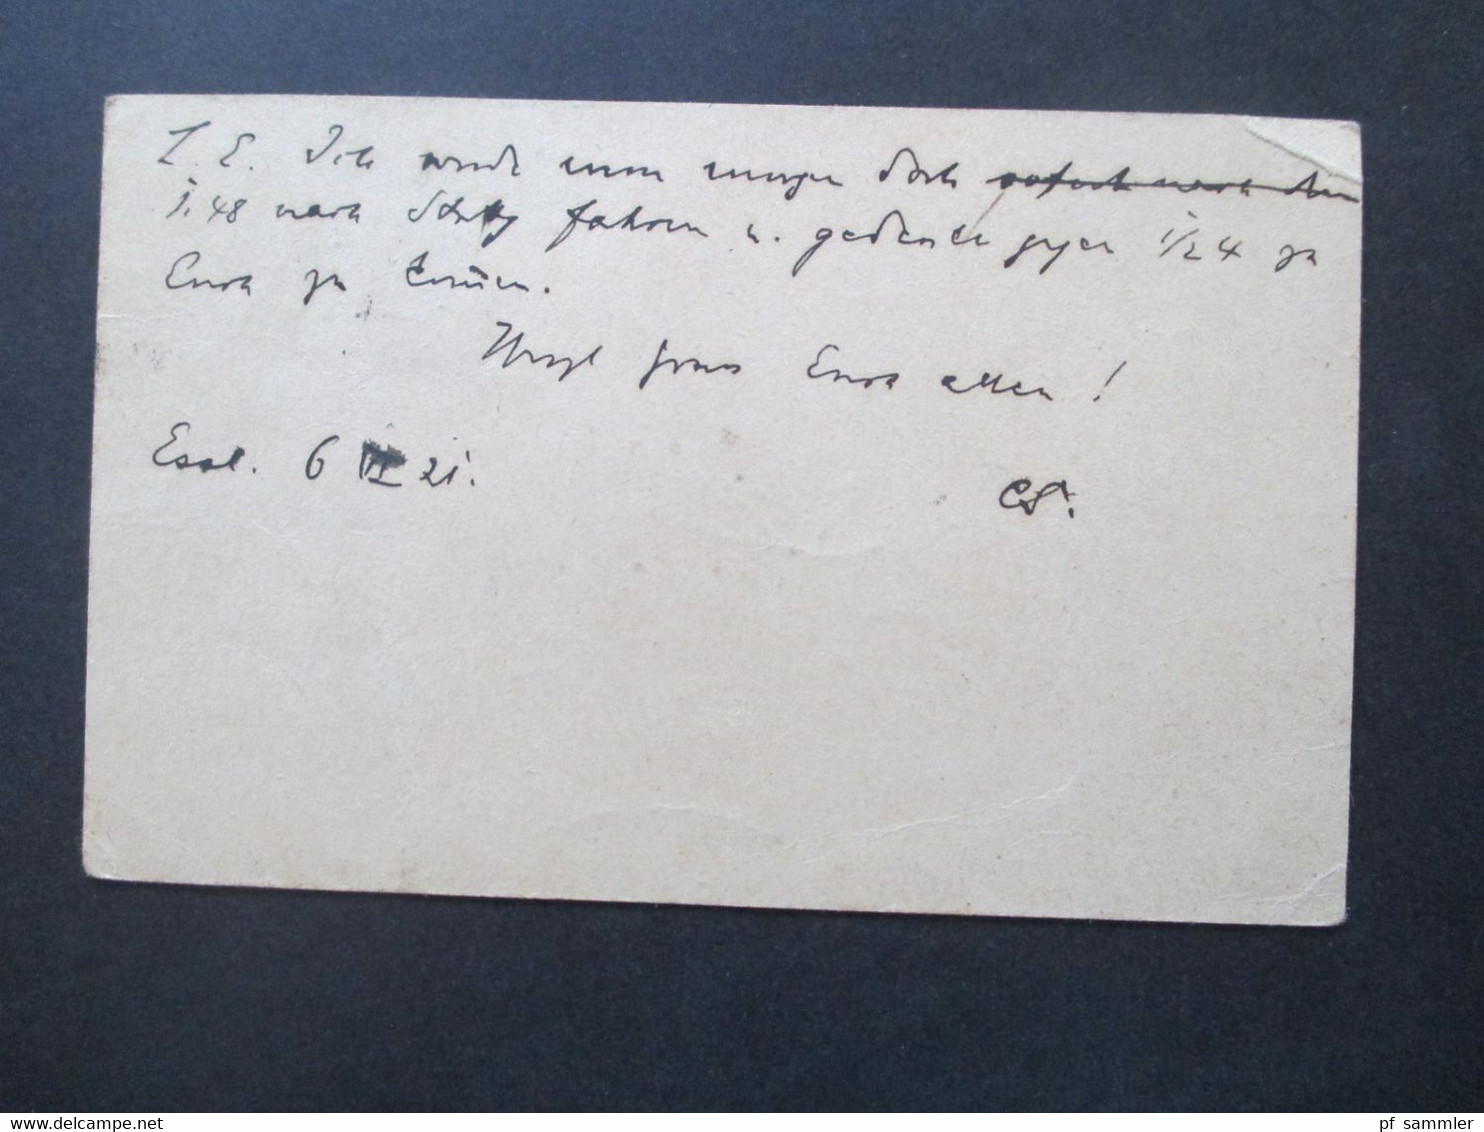 L. E. Ich werde nun morgen doch sofort nach dem
1.48 nach Stuttg fahren u. gedenke gegen 1/2 4 zu
Euch zu kommen.
Herzl Gruss Euch allen!
Essl. 6 VI 21.
CS.
pf sammler
delcampe.net